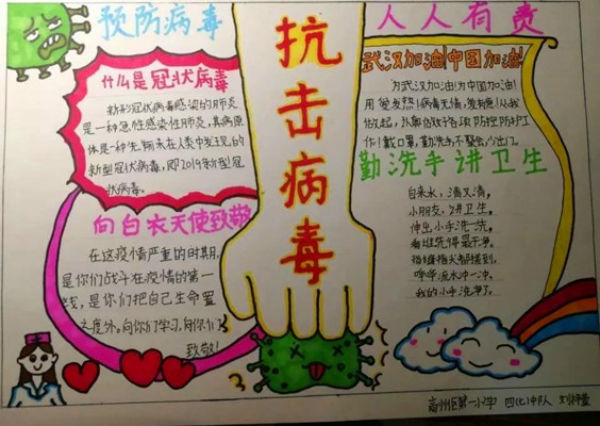 预防病毒
人人有责
抗击病毒
什么是冠状病毒
新形冠状病毒感染的肺炎
是一种急性感染性肺炎,其病原
体是一种先前未在人类中发现的
新型冠状病毒,即2019新型冠
状病毒。
向白衣天使致敬
在这疫情严重的时期,
是你们战斗在疫情的第一
线,是你们把自己生命置
之度外。向你们学习,向你们
致敬!
武汉加油!中国加油!
为武汉加油!为中国加油!
用爱发热!病毒无情,爱有恩!从我
做起,
防控防护工
作!戴口罩,勤洗手,不聚会,少出门。
勤洗手讲卫生
自来水,清又清,
小朋友,讲卫生。
伸出小手洗一洗,
看谁洗得最干净。
指缝指尖都搓到,
哗哗流水冲一冲,
我的小手洗净了。
州区第一小学 四(七)中队 刘